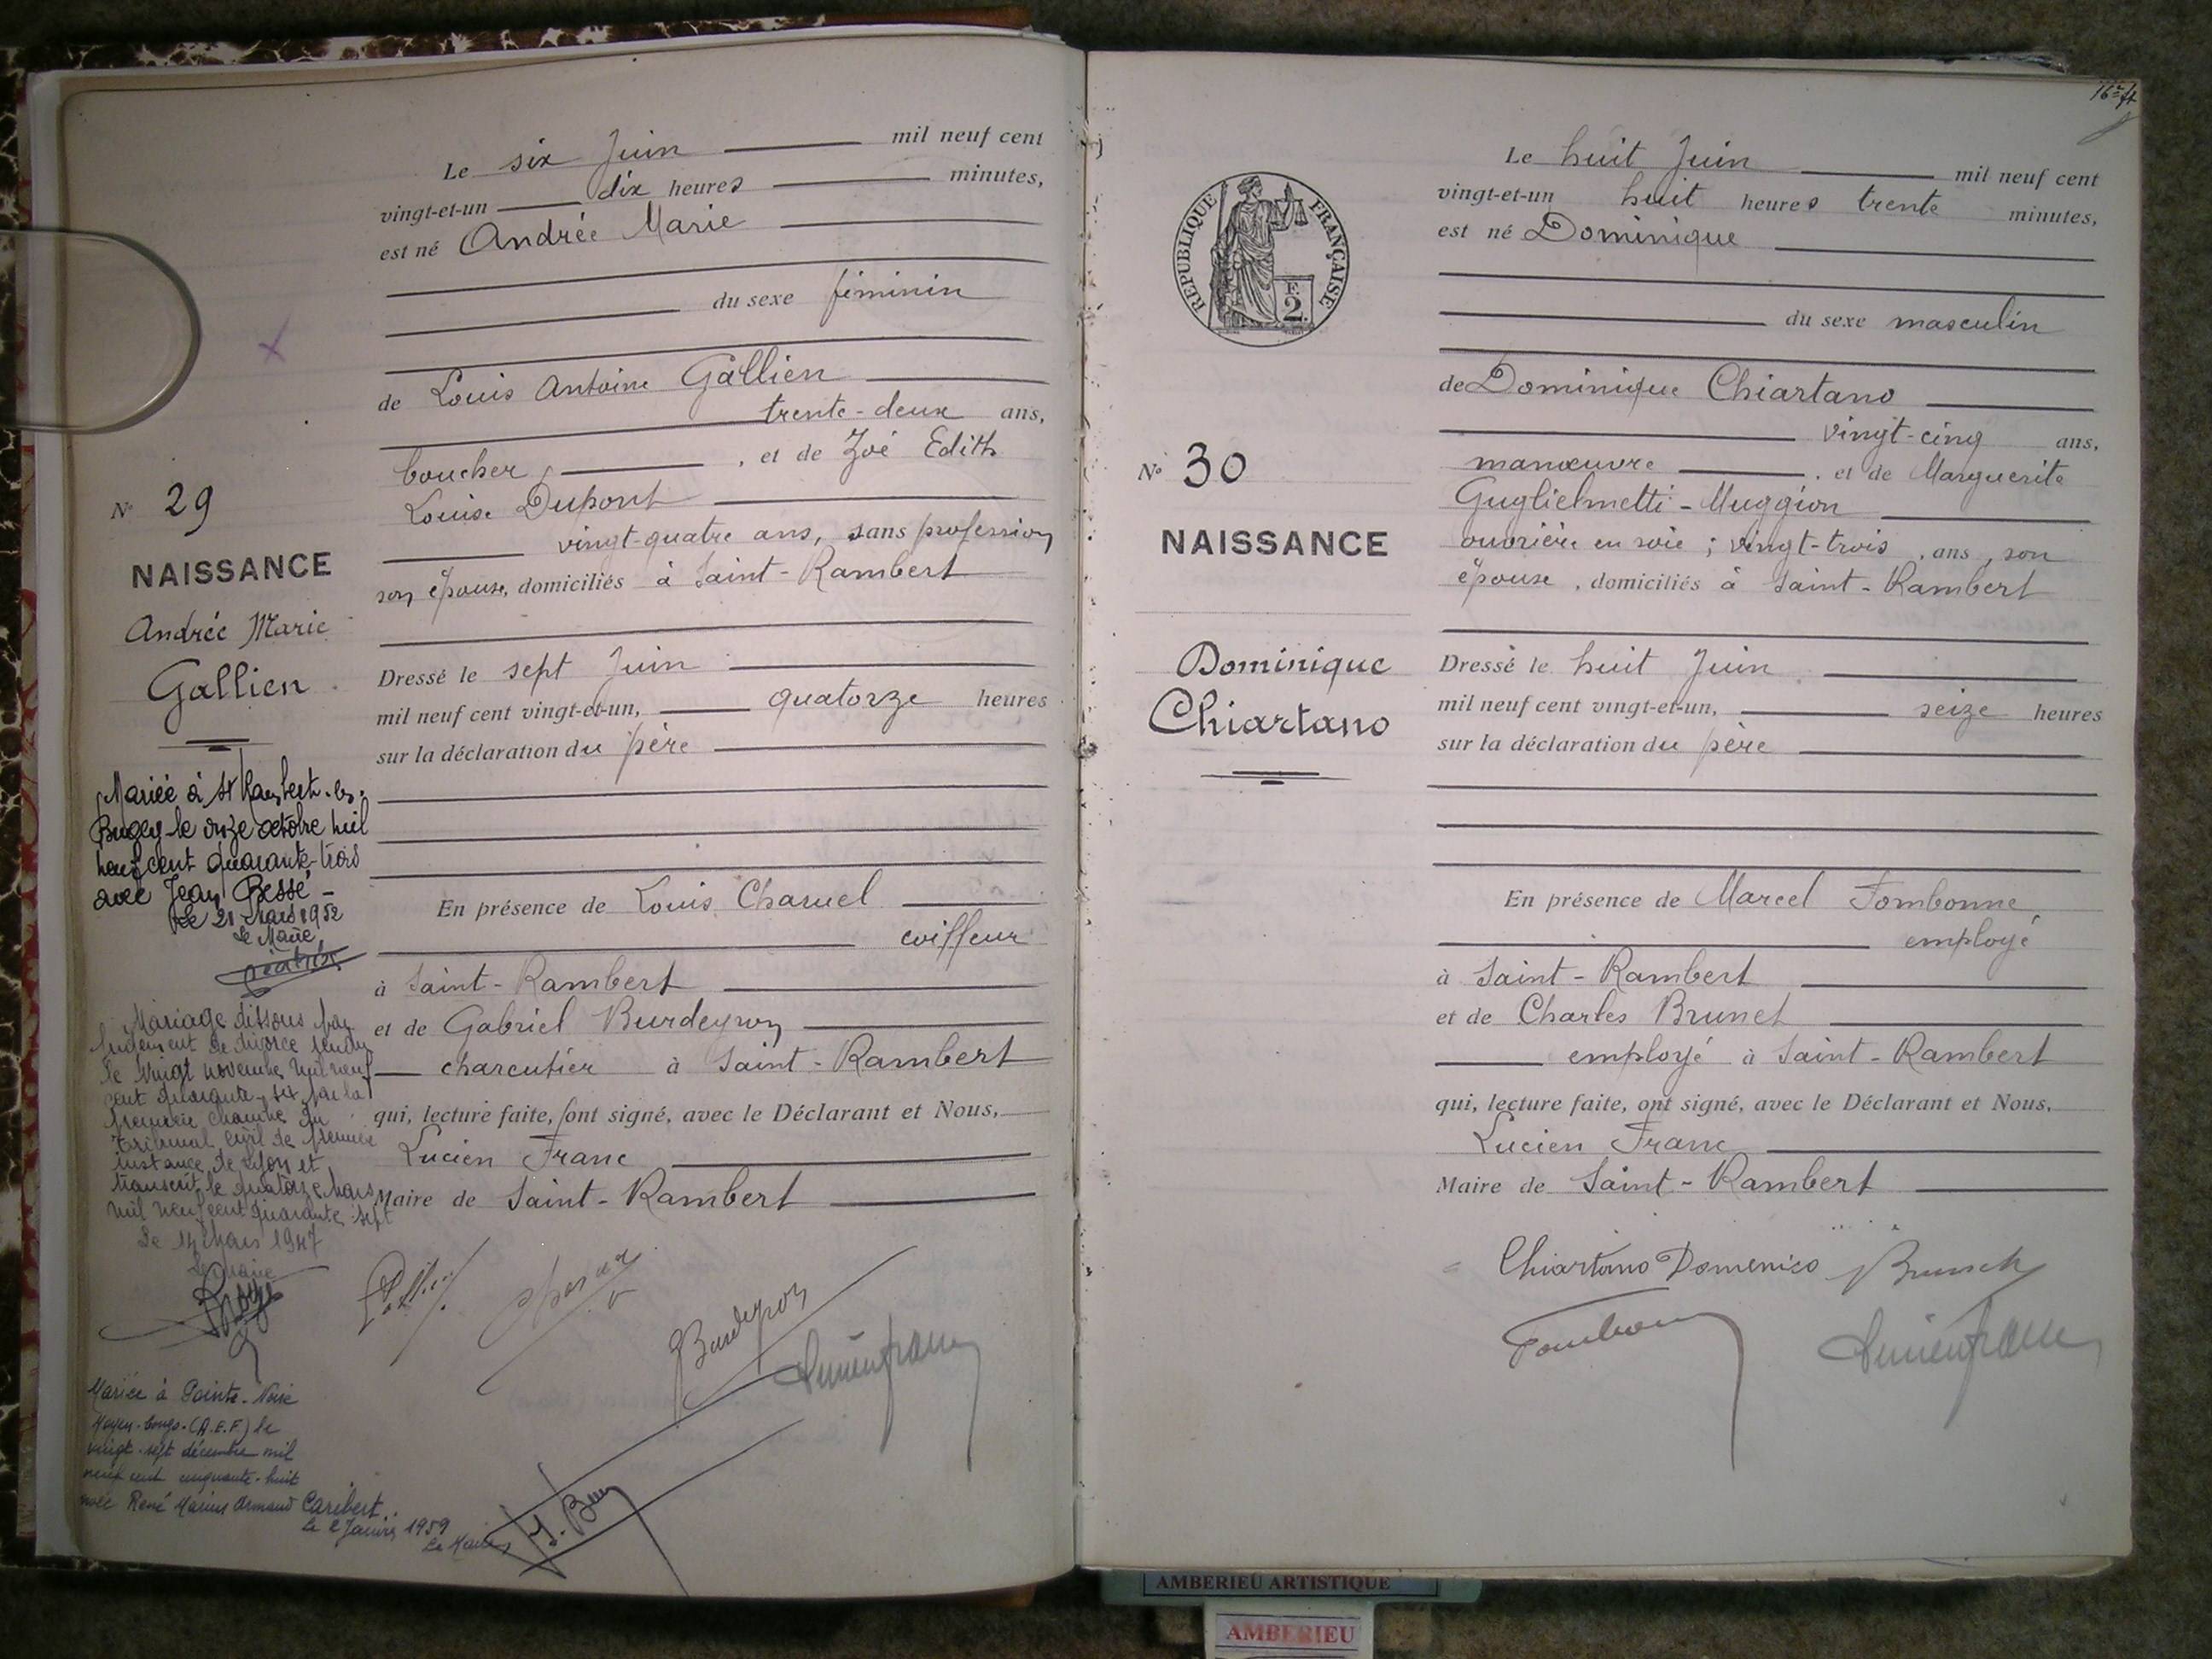 Le six Juin mil neuf cent
vingt-et-un dix heures minutes,
est né Andrée Marie
du sexe féminin
de Louis Antoine Gallien
trente-deux ans,
boucher, et de Zoé Edith
Louise Dupont
vingt-quatre ans, sans profession
son épouse, domiciliés à Saint-Rambert
Dressé le sept Juin
mil neuf cent vingt-et-un, quatorze heures
sur la déclaration du père
En présence de Louis Charuel
coiffeur
à Saint-Rambert
et de Gabriel Burdeyron
charcutier à Saint-Rambert
qui, lecture faite, ont signé, avec le Déclarant et Nous,
Lucien Franc
Maire de Saint-Rambert
Burdeyron
Lucien Franc
N° 29
NAISSANCE
Andrée Marie
Gallien
Mariée à St Rambert-en-
Bugey le onze octobre mil
neuf cent quarante-trois
avec Jean Bessé -
Le 21 Mars 1952
Le Maire
Mariage dissous par
Jugement de divorce rendu
le vingt novembre mil neuf
cent quarante-six par la
première chambre du
tribunal civil de première
instance de Lyon et
transcrit le quatorze Mars
mil neuf cent quarante sept
Le 14 Mars 1947
Le Maire
Mariée à Pointe-Noire
Moyen-Congo-(A.E.F.) le
vingt-sept décembre mil
neuf cent cinquante-huit
avec René Marius Armand Caribert.
Le 2 Janvier 1959
Le Maire
Le huit Juin mil neuf cent
vingt-et-un huit heures trente minutes,
est né Dominique
du sexe masculin
de Dominique Chiartano
vingt-cinq ans,
manœuvre, et de Marguerite
Guglielmetti-Muggion
ouvrière en soie; vingt-trois, ans, son
épouse, domiciliés à Saint-Rambert
Dressé le huit Juin
mil neuf cent vingt-et-un, seize heures
sur la déclaration du père
En présence de Marcel Fombonne
employé
à Saint-Rambert
et de Charles Brunet
employé à Saint-Rambert
qui, lecture faite, ont signé, avec le Déclarant et Nous,
Lucien Franc
Maire de Saint-Rambert
Chiartano Domenico
Lucien Franc
RÉPUBLIQUE FRANÇAISE
F.
2.
N° 30
NAISSANCE
Dominique
Chiartano
AMBERIEU ARTISTIQUE
AMBERIEU